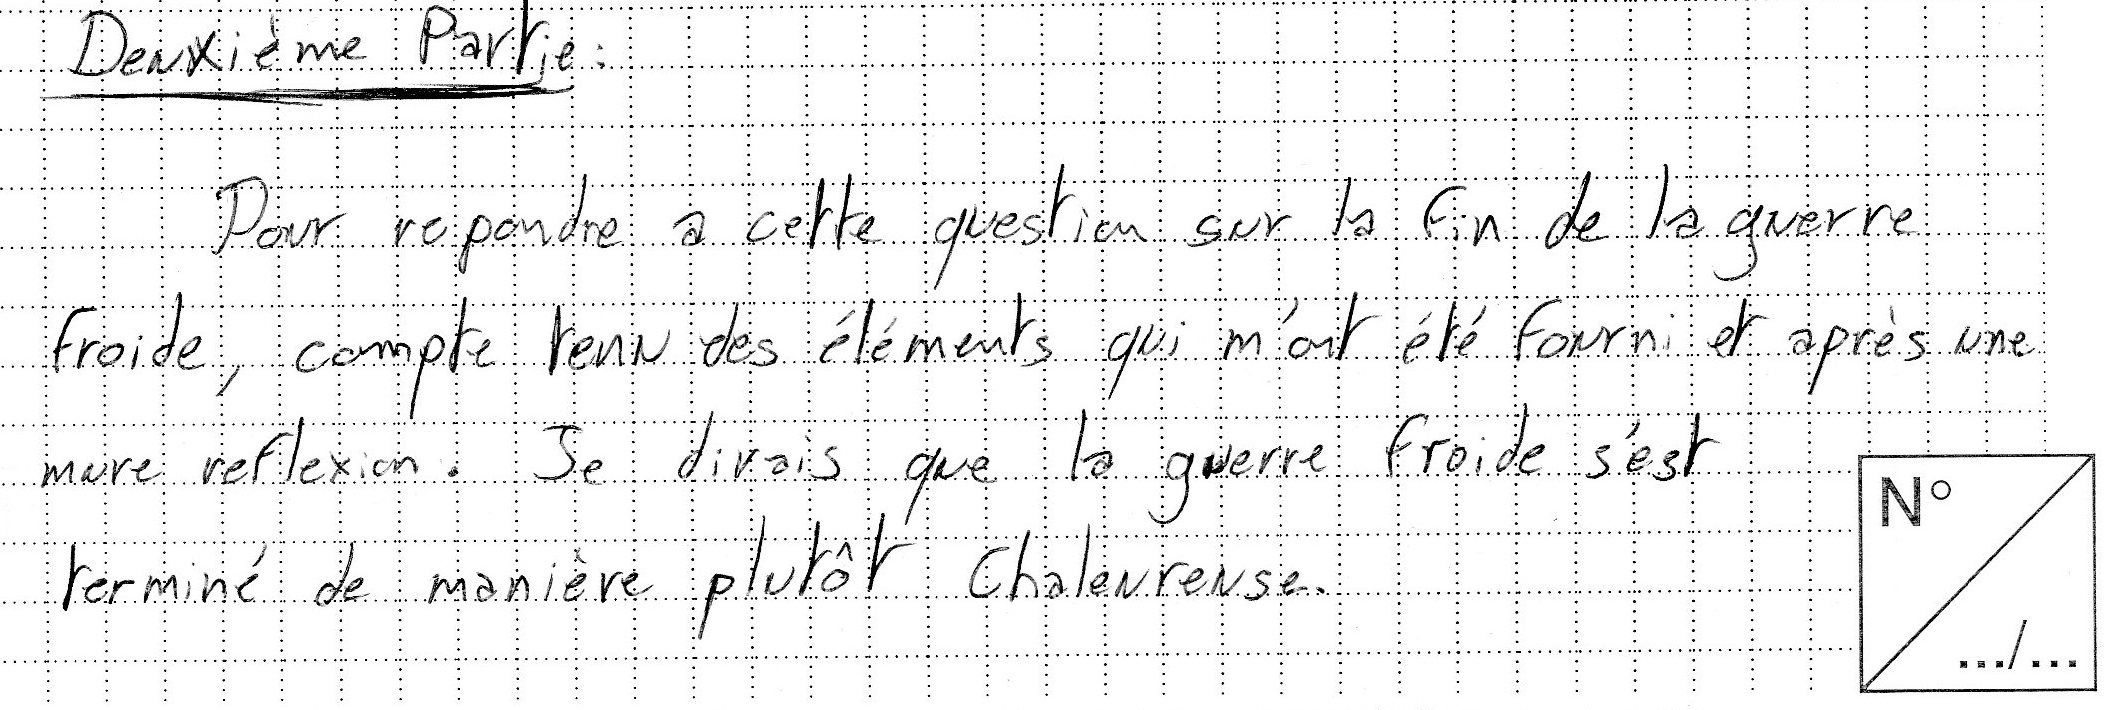 Deuxième Partie :
Pour repondre a cette question sur la fin de la guerre
froide, compte tenu des éléments qui m'ont été fourni et après une
mure reflexion. Je dirais que la guerre froide s'est
terminé de manière plutôt Chaleureuse.
N°
.../...